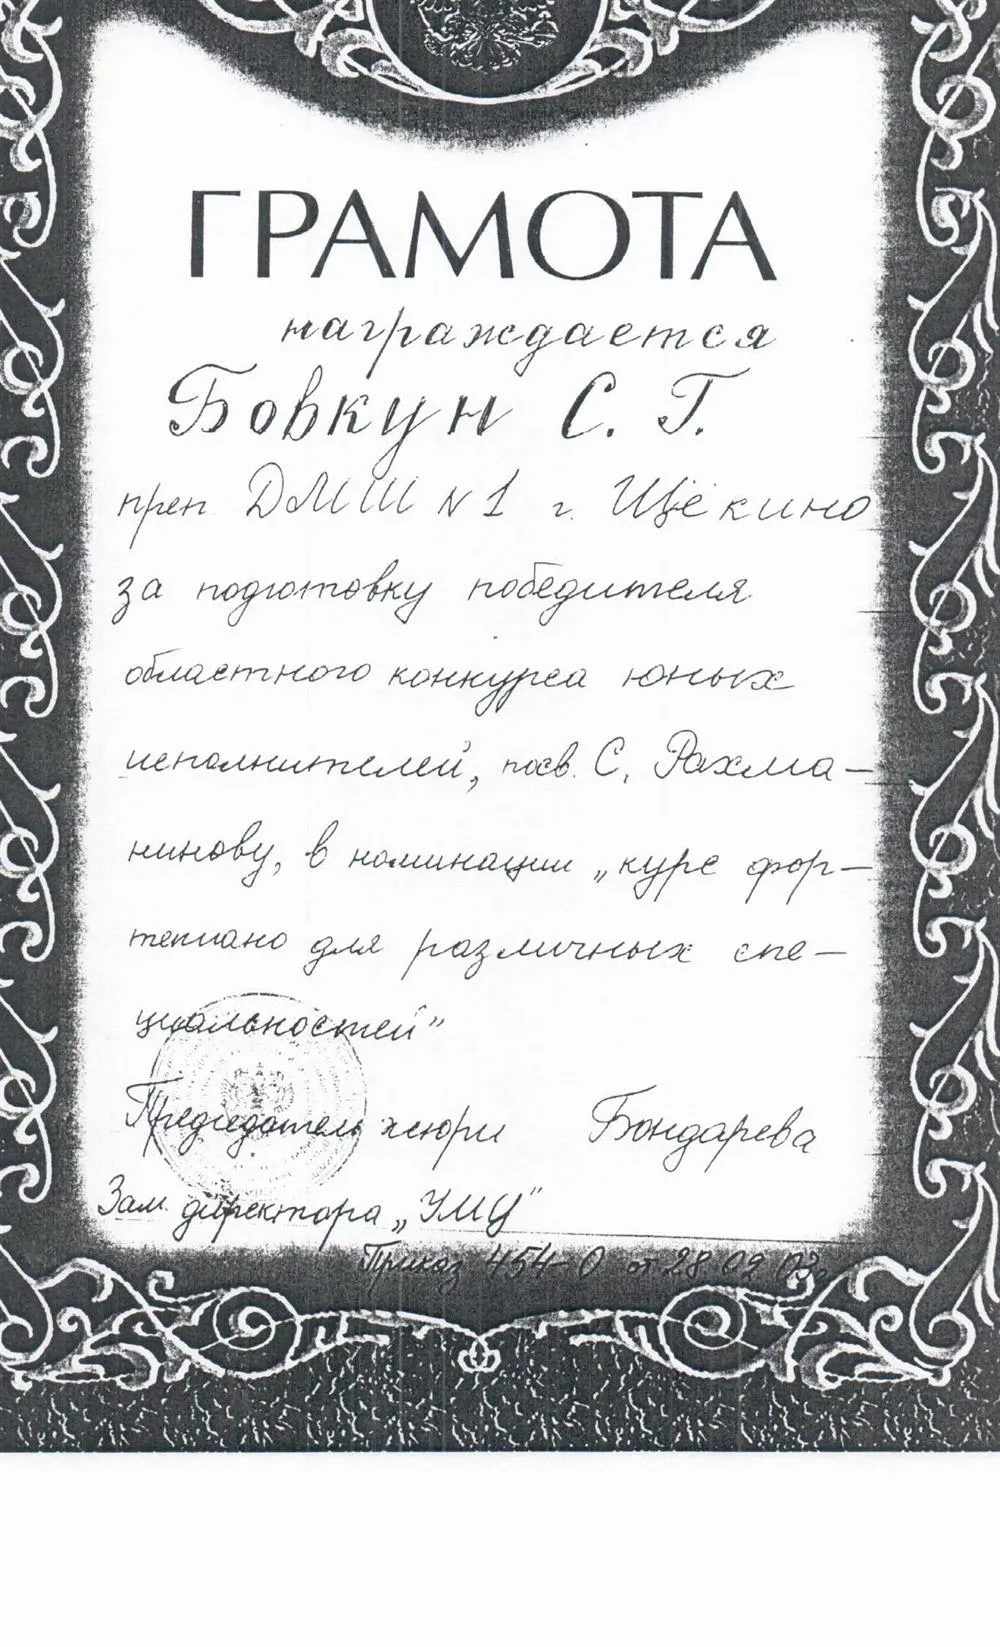 ГРАМОТА
награждается
Бовкун С. Г.
преп ДМШ N 1 г. Щёкино
за подготовку победителя
областного конкурса юных
исполнителей, посв. С. Рахма-
нинову, в номинации „курс фор-
тепиано для различных спе-
циальностей”
Председатель жюри Бондарева
Зам. директора „УМЦ”
Приказ 454-О от 28 02 03г